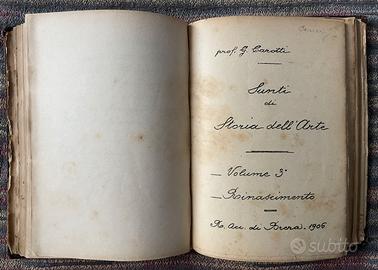 prof. G. Carotti
Sunti
di
Storia dell'Arte
Volume 3°
Rinascimento
R. Acc. di Brera. 1906
subito